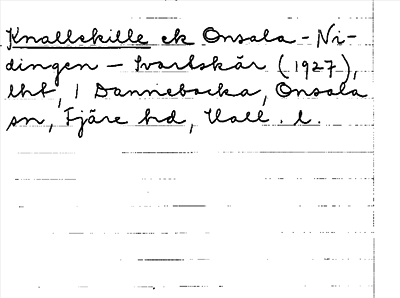 Knallskille ek Onsala - Ni-
dingen - Svartskär (1927),
lht, 1 Dannebacka, Onsala
sn, Fjäre hd, Hall. l.